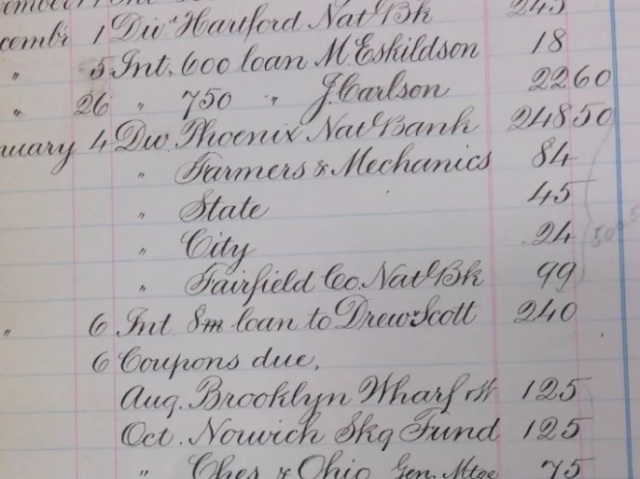 Div. Hartford Nat'l Bk 245
cembr 1
" 5 Int. 600 loan M. Eskildson 18
" 26 " 750 " J. Carlson 22 60
nuary 4 Div. Phoenix Nat'l Bank 248 50
" Farmers & Mechanics 84
" State 45
" City 24
" Fairfield Co. Nat'l Bk 99
" 6 Int 8m loan to Drew & Scott 240
6 Coupons due,
Aug. Brooklyn Wharf 125
Oct. Norwich Skg Fund 125
" Ches & Ohio Gen. Mtge 75